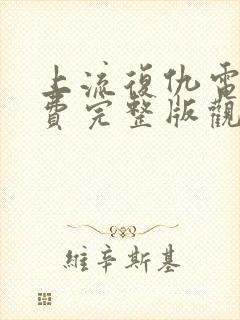 上流復仇電
費完整版觀
維辛斯基